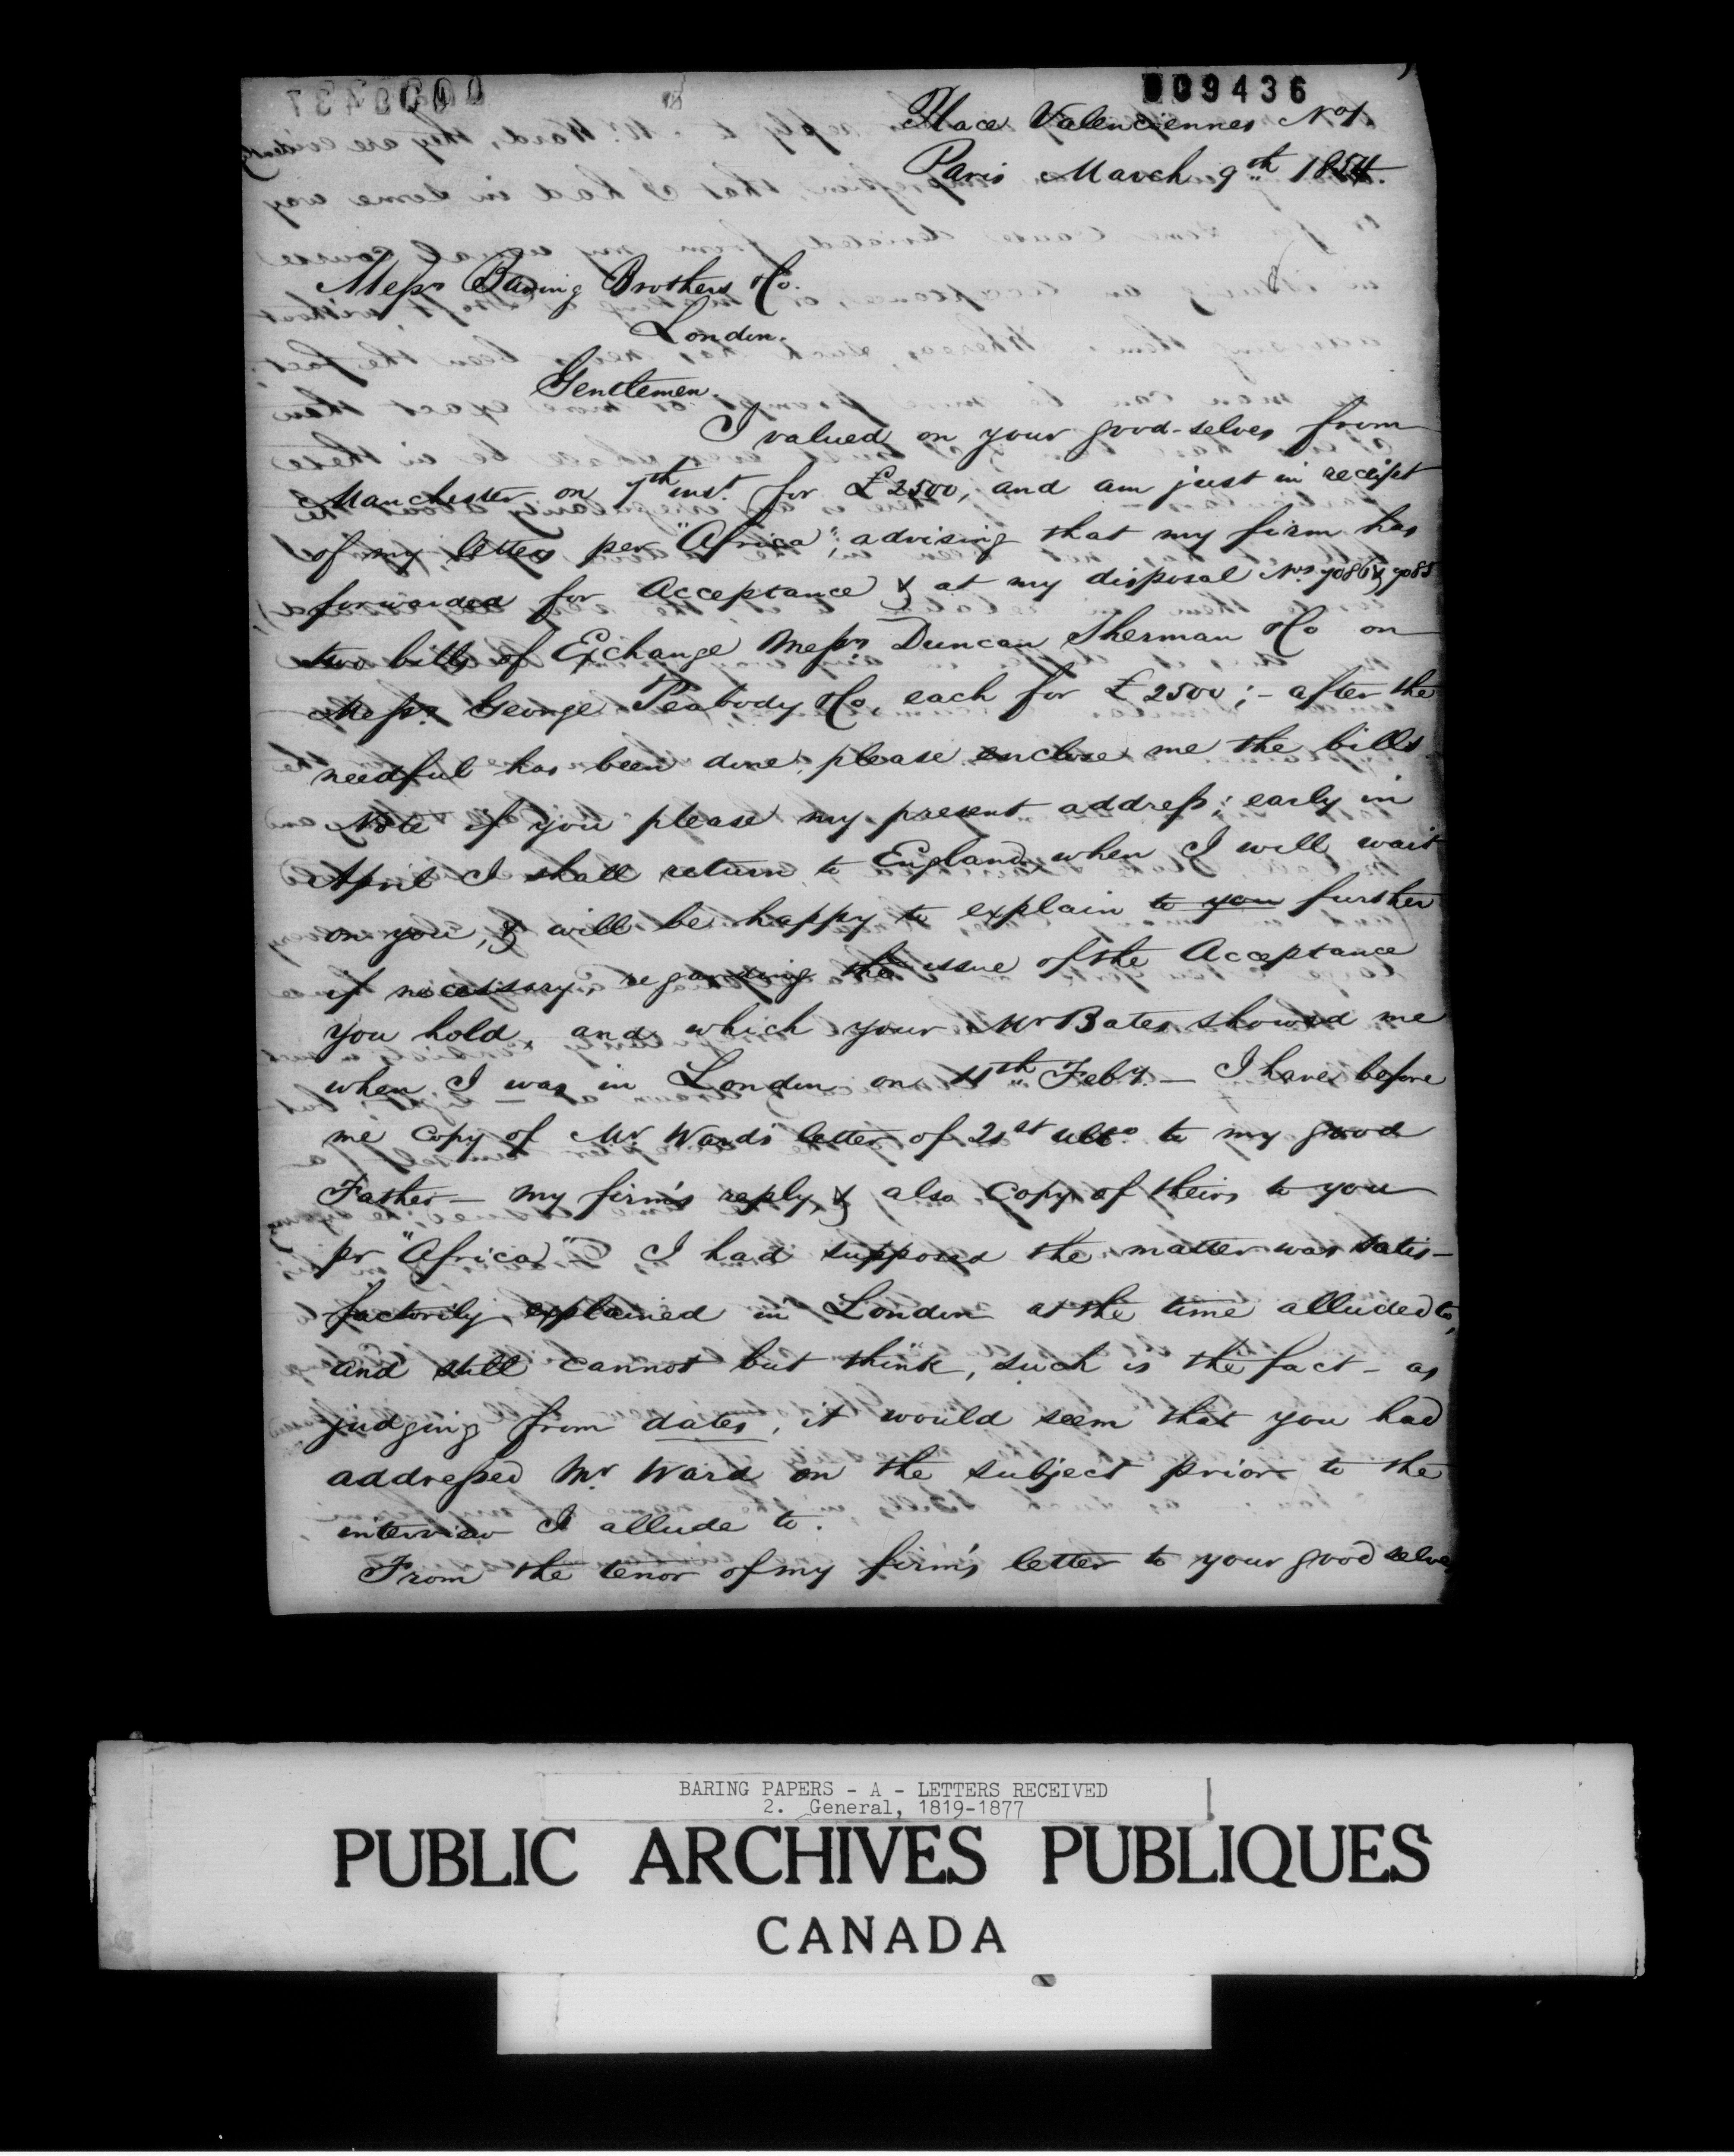 009436
Place Valenciennes No 1.
Paris March 9th 1854.
Messrs Baring Brothers & Co.
London.
Gentlemen.
I valued on your good-selves from
Manchester on 7th inst. for £2500, and am just in receipt
of my letters per "Africa", advising that my firm has
forwarded for Acceptance & at my disposal Nos. 7086 & 7085
two bills of Exchange Messrs Duncan Sherman & Co on
Messrs George Peabody & Co, each for £2500;- after the
needful has been done, please enclose me the bills.
Note if you please my present address; early in
April I shall return to England when I will wait
on you, & will be happy to explain to you further
if necessary, regarding the issue of the Acceptance
you hold, and which your Mr Bates showed me
when I was in London on 11th Feby. - I have before
me Copy of Mr. Ward's letter of 21st ulto to my good
Father - my firm's reply, & also Copy of theirs to you
pr "Africa" I had supposed the matter was satis-
factorily explained in London at the time alluded to,
and still cannot but think, such is the fact - as
judging from dates, it would seem that you had
addressed Mr. Ward on the subject prior to the
interview I allude to.
From the tenor of my firm's letter to your good selves
BARING PAPERS - A - LETTERS RECEIVED
2. General, 1819-1877
PUBLIC ARCHIVES PUBLIQUES
CANADA